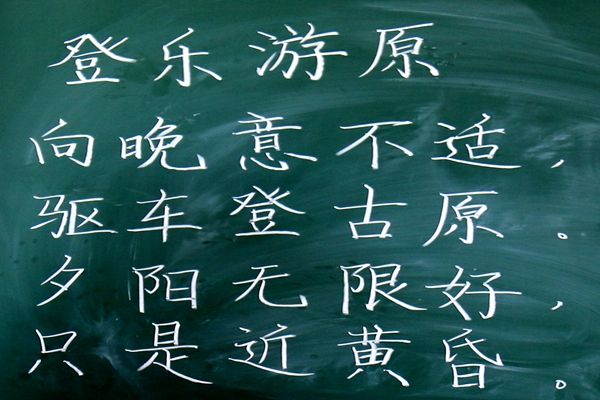 登乐游原
向晚意不适，
驱车登古原。
夕阳无限好，
只是近黄昏。